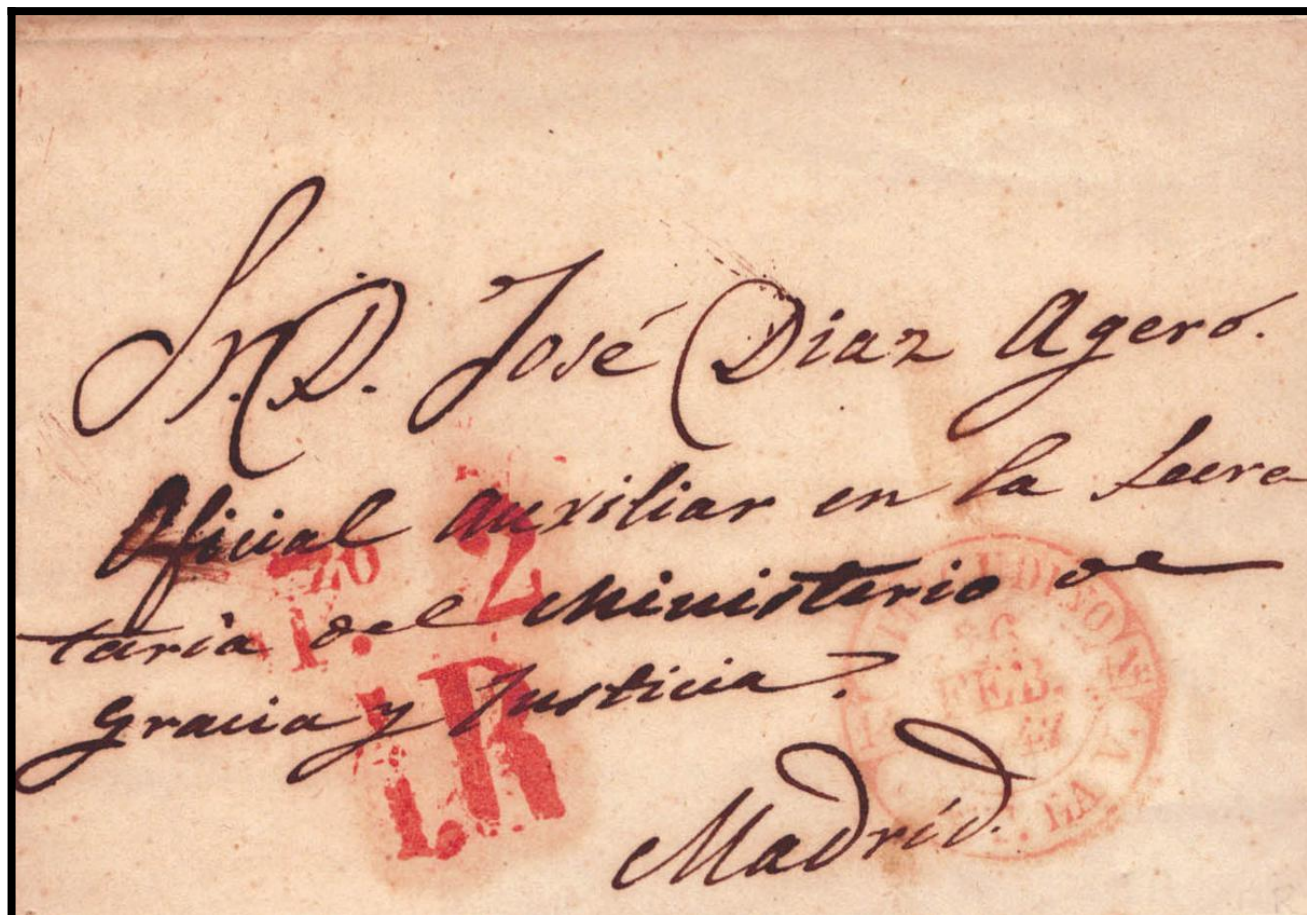 Sr. D. José Diaz Agero.
Oficial Auxiliar en la Secre
taria del Ministerio de
Gracia y Justicia.
Madrid.
2
R
FEB.
47
LA V.